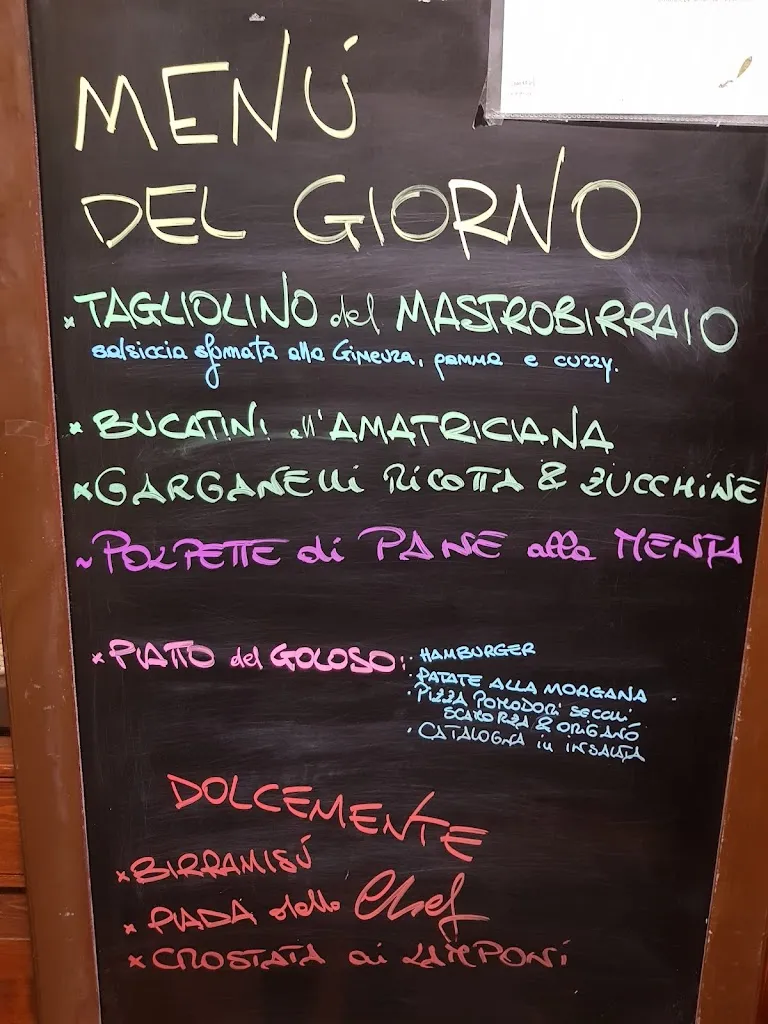 MENÚ
DEL GIORNO
× TAGLIOLINO del MASTROBIRRAIO
salsiccia sfumata alla Ginevra, panna e curry.
× BUCATINI all'AMATRICIANA
× GARGANELLI RICOTTA & ZUCCHINE
~ POLPETTE di PANE alla MENTA
× PIATTO del GOLOSO:
· HAMBURGER
· PATATE ALLA MORGANA
· PIZZA POMODORI SECCHI
SCAMORZA & ORIGANO
· CATALOGNA in INSALATA
DOLCEMENTE
× BIRRAMISÚ
× PIADA dello Chef
× CROSTATA ai LAMPONI